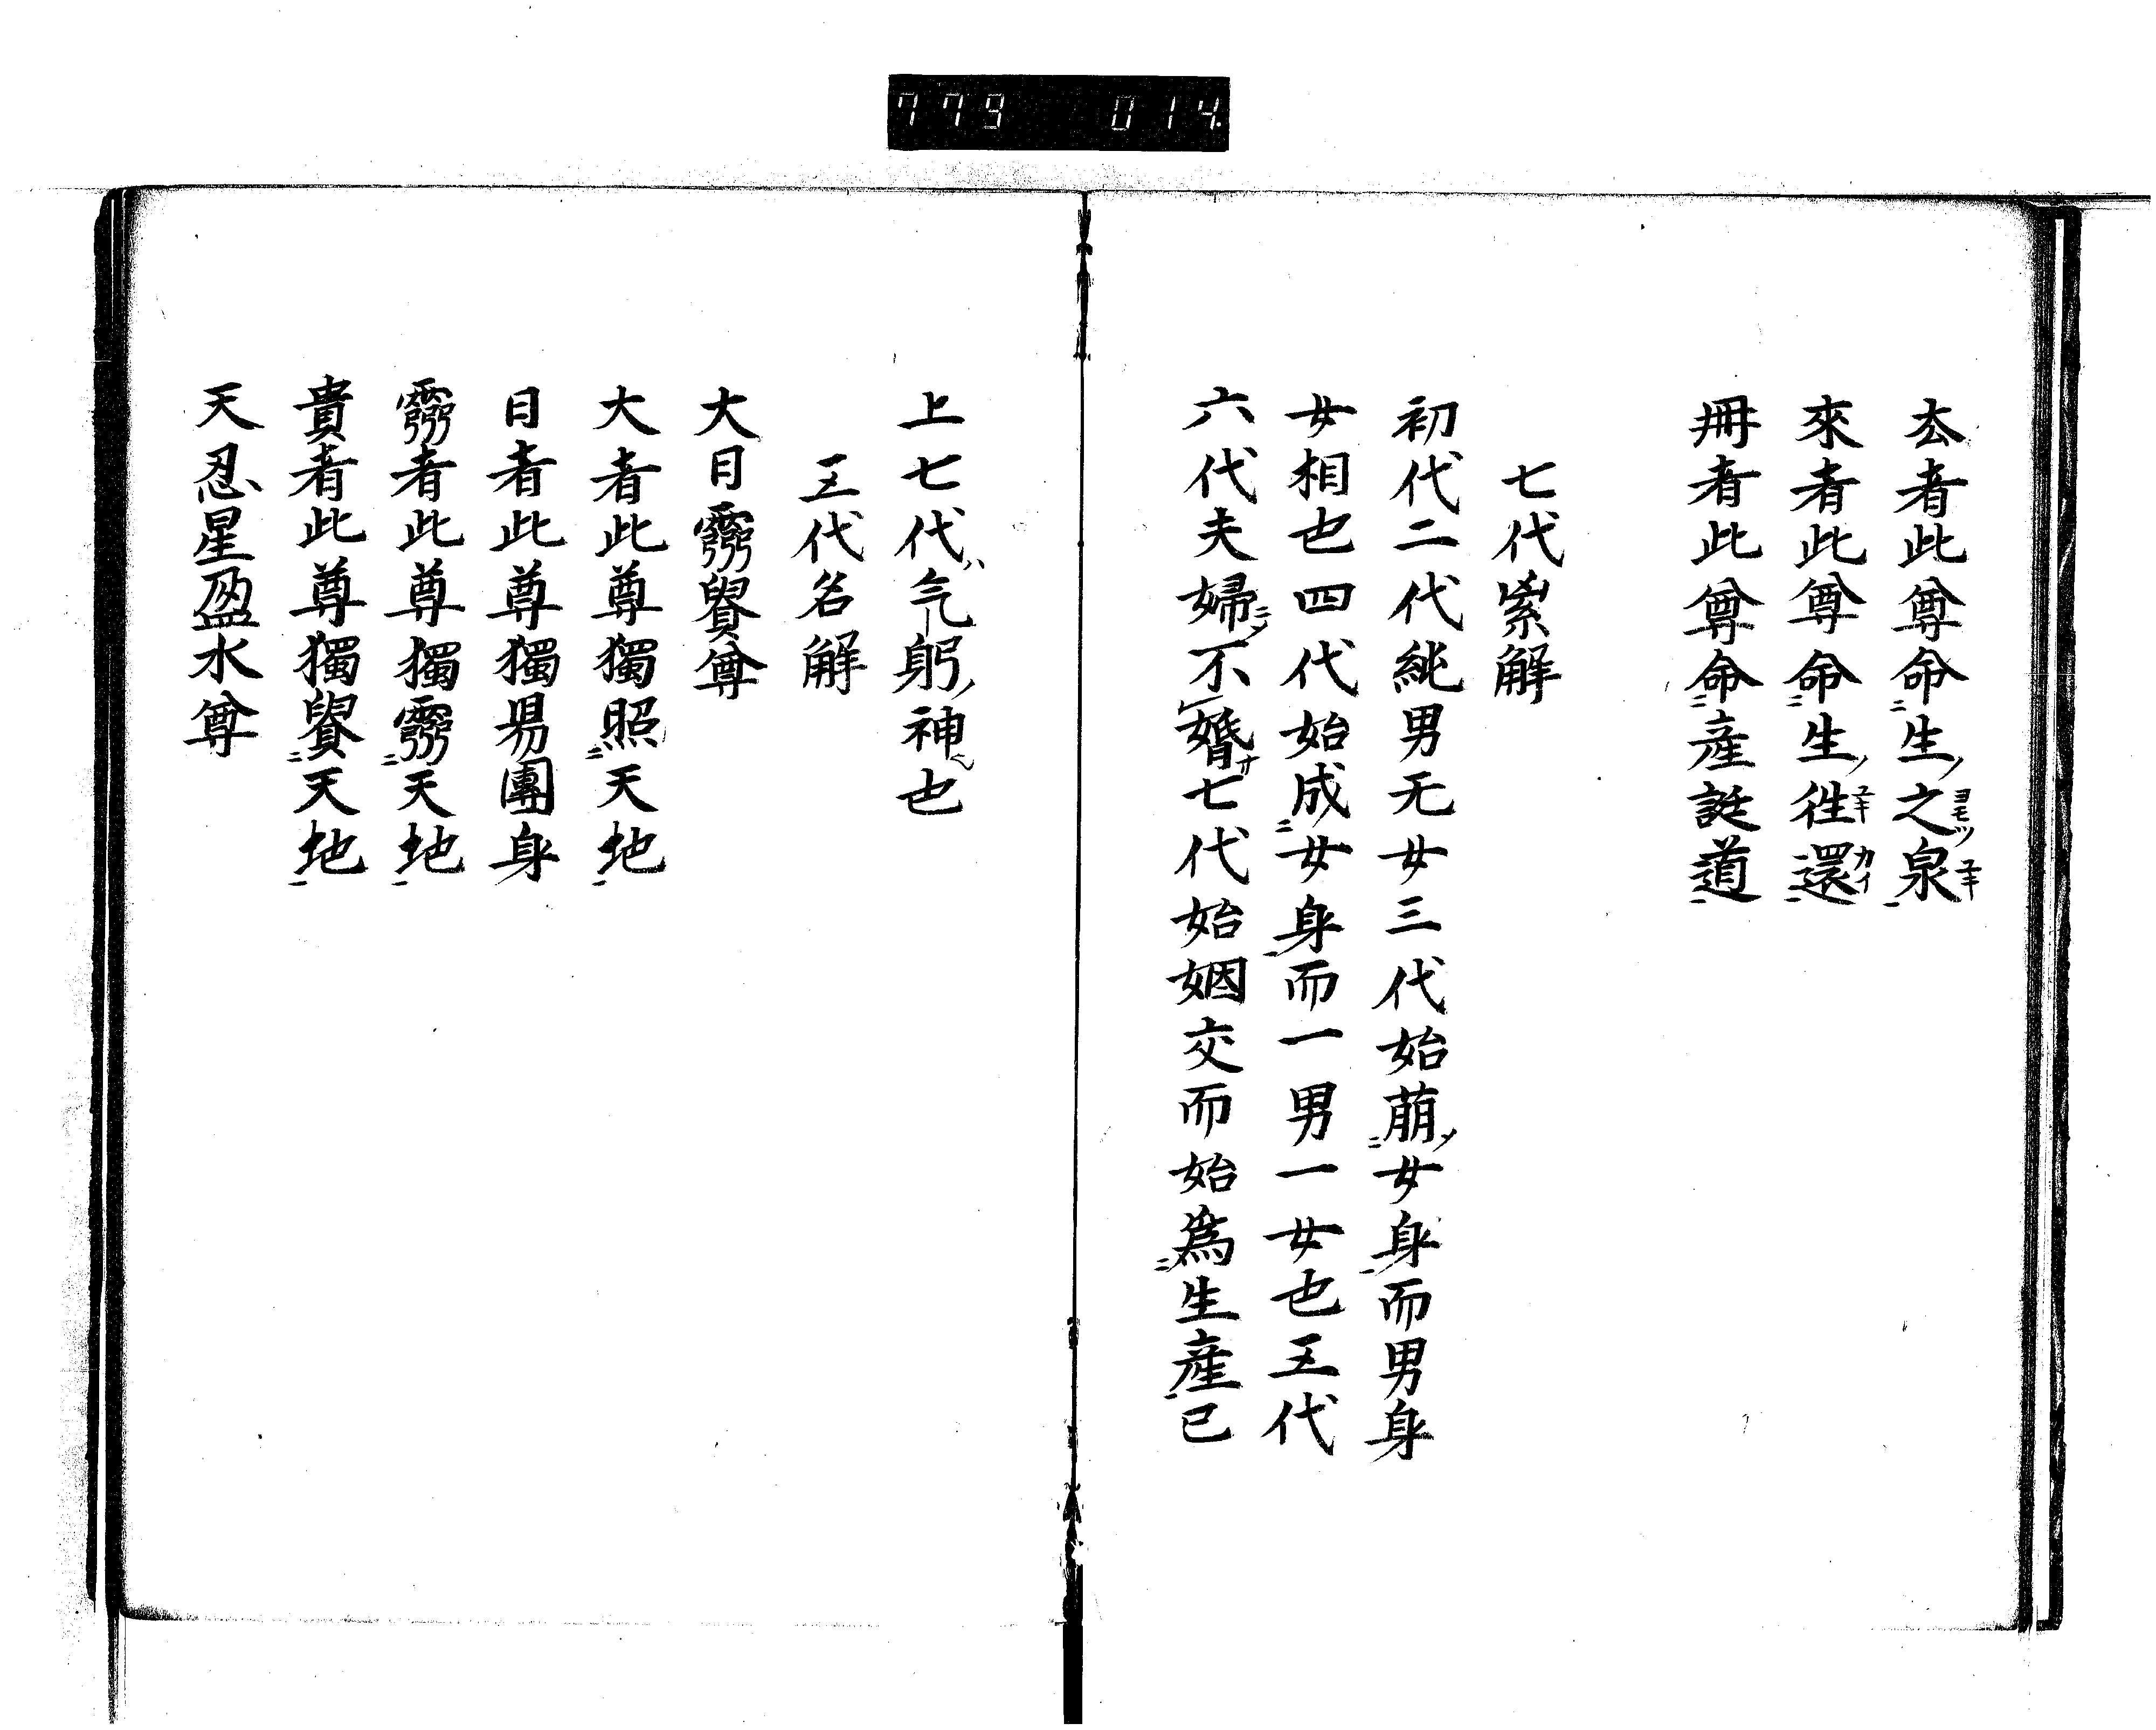 773 014.
厺者此尊命生之泉
來者此尊命生徃還
冊者此尊命産誕道
七代紫解
初代二代純男无女三代始萠女身而男身
女相也四代始成女身而一男一女也五代
六代夫婦不婚七代始姻交而始爲生産已
上七代气躬神也
五代名解
大日孁貴尊
大者此尊獨照天地
日者此尊獨昜團身
孁者此尊獨孁天地
貴者此尊獨貴天地
天忍星盈水尊